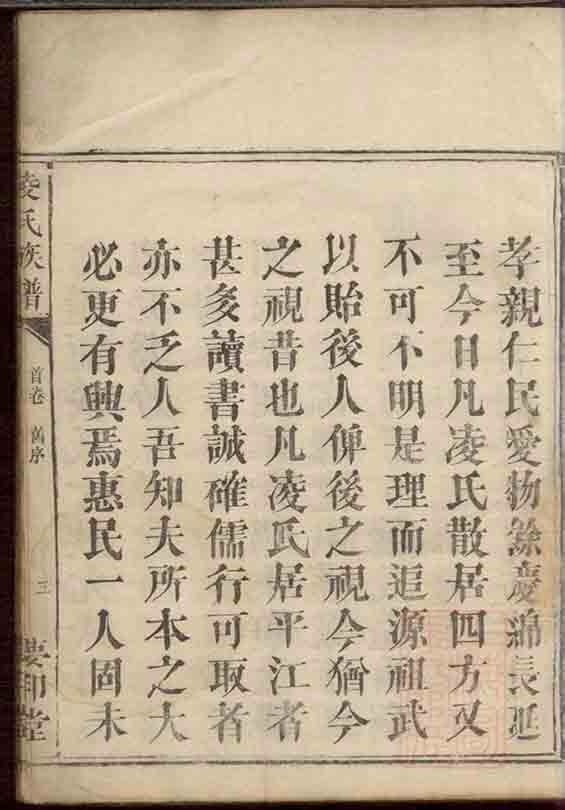 孝親仁民愛物餘慶綿長延
至今日凡凌氏散居四方又
不可不明是理而追源祖武
以貽後人俾後之視今猶今
之視昔也凡凌氏居平江者
甚多讀書誠確儒行可取者
亦不乏人吾知夫所本之大
必更有興焉惠民一人固未
凌氏族譜
首卷 舊序
三